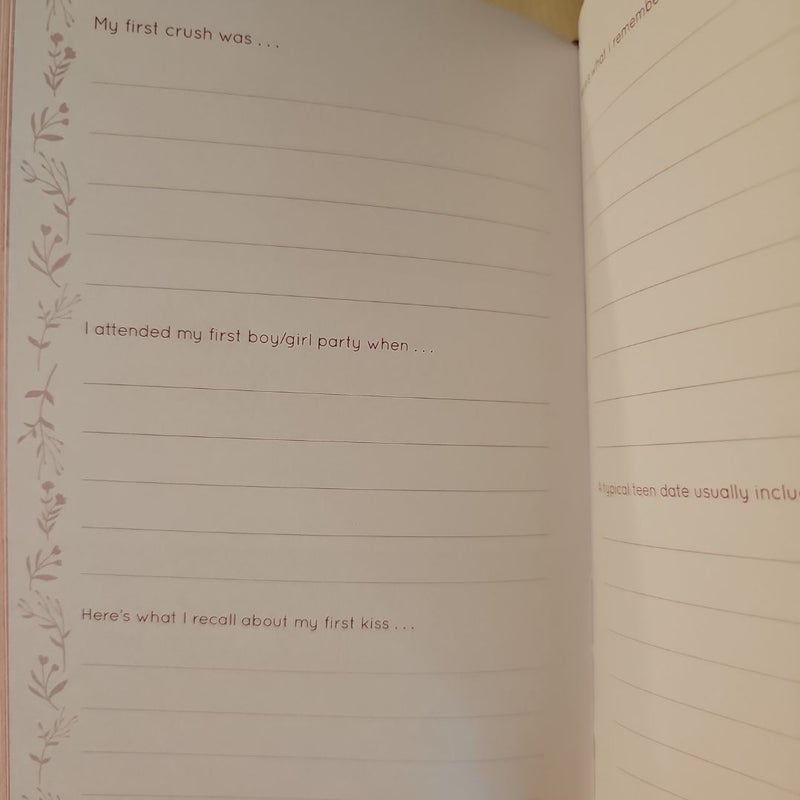 My first crush was . . .
I attended my first boy/girl party when . . .
Here's what I recall about my first kiss . . .
what I remember
A typical teen date usually